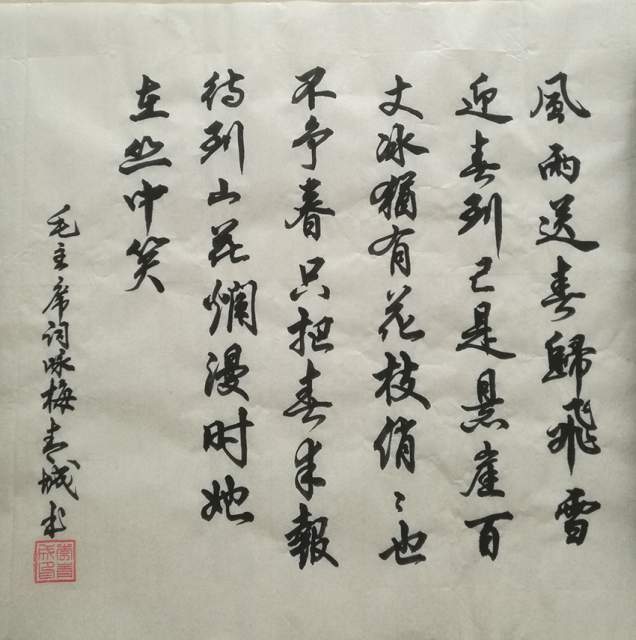 風雨送春歸飛雪
迎春到已是悬崖百
丈冰猶有花枝俏〻也
不争春只把春来報
待到山花爛漫时她
在丛中笑
毛主席词咏梅青城书